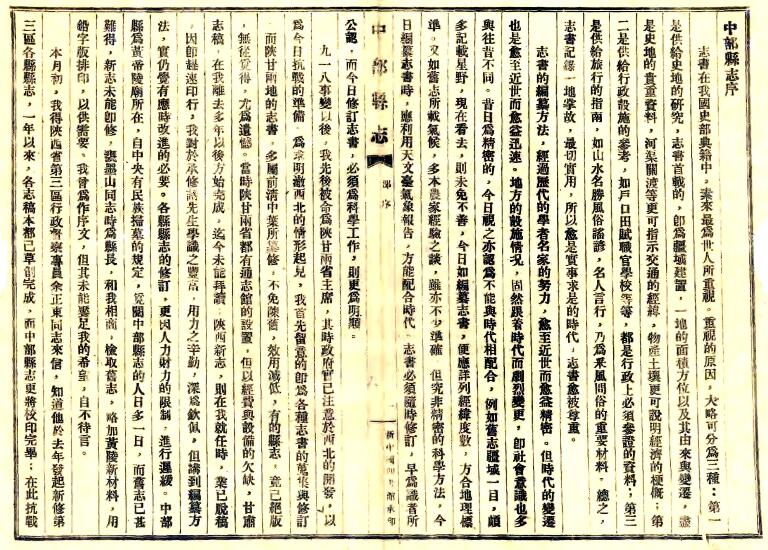 中部縣志序
志書在我國史部典籍中，素來最爲世人所重視。重視的原因，大略可分爲三種：第一
是供給史地的研究，志書首載的，卽爲疆域建置，一地的面積方位以及其由來與變遷，盡
是史地的貴重資料，河渠關渡等更可指示交通的經緯，物產土壤更可說明經濟的梗概；第
二是供給行政設施的參考，如戶口田賦職官學校等等，都是行政上必須參證的資料；第三
是供給旅行的指南，如山水名勝風俗謠諺，名人言行，乃爲釆風問俗的重要材料。總之，
志書記錄一地掌故，最切實用，所以愈是實事求是的時代，志書愈被尊重。
志書的編纂方法，經過歷代的學者名家的努力，愈至近世而愈益精密。但時代的變遷
也是愈至近世而愈益迅速。地方的設施情况，固然跟着時代而劇烈變更，卽社會意識也多
與往昔不同。昔日爲精密的，今日視之亦認爲不能與時代相配合，例如舊志疆域一目，頗
多記載星野，現在看去，則未免不善，今日如編纂志書，便應詳列經緯度數，方合地理標
準。又如舊志所載氣候，多本農家經驗之談，雖亦不少準確，但究非精密的科學方法，今
日編纂志書時，應利用天文臺氣象報告，方能配合時代。志書必須隨時修訂，早爲識者所
中部縣志
部序
公認，而今日修訂志書，必須爲科學工作，則更爲明顯。
九一八事變以後，我先後被命爲陝甘兩省主席，其時政府曾已注意於西北的開發，以
爲今日抗戰的準備。爲求明澈西北的情形起見，我首先留意的卽爲各種志書的蒐集與修訂
，而陝甘兩地的志書，多屬前淸中葉所纂修，不免陳舊，效用減低，有的縣志，竟已絕版
，無從覓得，尤爲遺憾。當時陝甘兩省都有通志館的設置，但以經費與設備的欠缺，甘肅
志稿，在我離去多年以後方始完成，迄今未能拜讀。陝西新志，則在我就任時，業已脫稿
，因卽趕速印行，我對於承修諸先生學識之豐富，用力之辛勤，深爲欽佩，但講到編纂方
法，實仍覺有應時改進的必要。各縣縣志的修訂，更因人力財力的限制，進行遲緩。中部
縣爲黃帝陵廟所在，自中央有民族掃墓的規定，覓閱中部縣志的人日多一日，而舊志已甚
難得，新志未能卽修，龔墨山同志時爲縣長，和我相商，檢取舊志，略加黃陵新材料，用
鉛字版排印，以供需要。我曾爲作序文，但其未能饜足我的希望，自不待言。
本月初，我得陝西省第三區行政督察專員余正東同志來信，知道他於去年發起新修第
三區各縣縣志，一年以來，各志稿本都已草創完成，而中部縣志更將校印完畢；在此抗戰